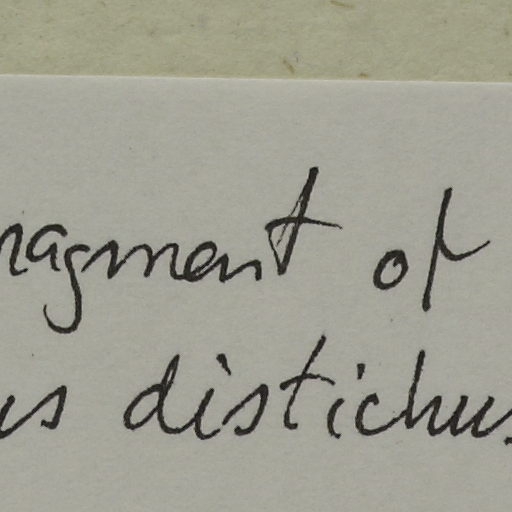 ragment of
us distichus